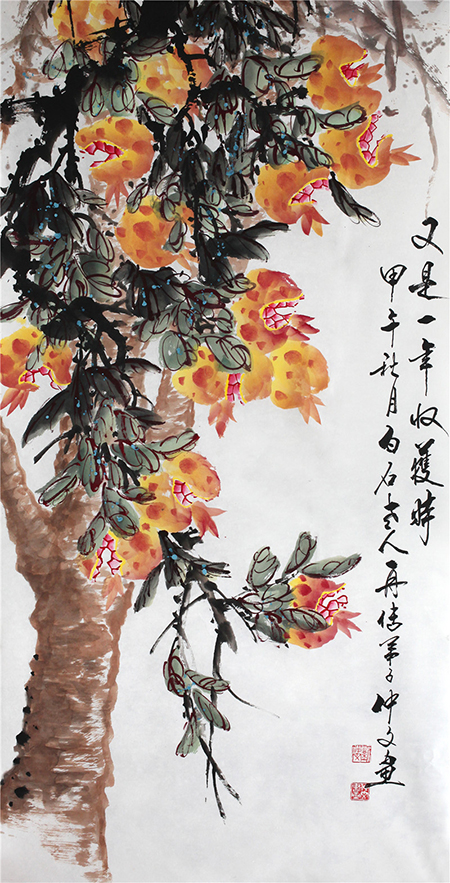 又是一年收获時
甲午秋月白石老人再传弟子仲文画